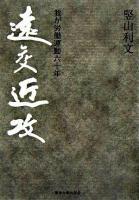 竪山利文
我が労働運動六十年
遠交近攻